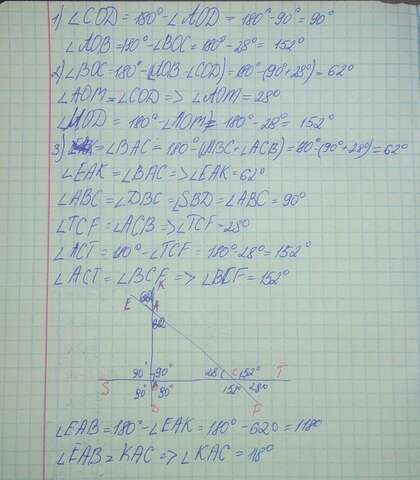 1) ∠COD = 180° - ∠AOD = 180° - 90° = 90°
∠AOB = 180° - ∠BOC = 180° - 28° = 152°
2) ∠BOC = 180° - (AOB - ∠COD) = 180° - (90° + 28°) = 62°
∠AOM = ∠COD => ∠AOM = 28°
∠MOD = 180° - ∠AOM = 180° - 28° = 152°
3) = ∠BAC = 180° (ABC + ∠ACB) = 180° (90° + 28°) = 62°
∠EAK = ∠BAC => ∠EAK = 62°
∠ABC = ∠DBC = ∠SBD = ∠ABC = 90°
∠TCF = ∠ACB => ∠TCF = 28°
∠ACT = 180° - ∠TCF = 180° - 28° = 152°
∠ACT = ∠BCF => ∠BCF = 152°
K
E
A
90° 90° 28° C 152° T
S 90° B 90° 152° 28°
D F
∠EAB = 180° - ∠EAK = 180° - 62° = 118°
∠EAB = KAC => ∠KAC = 118°